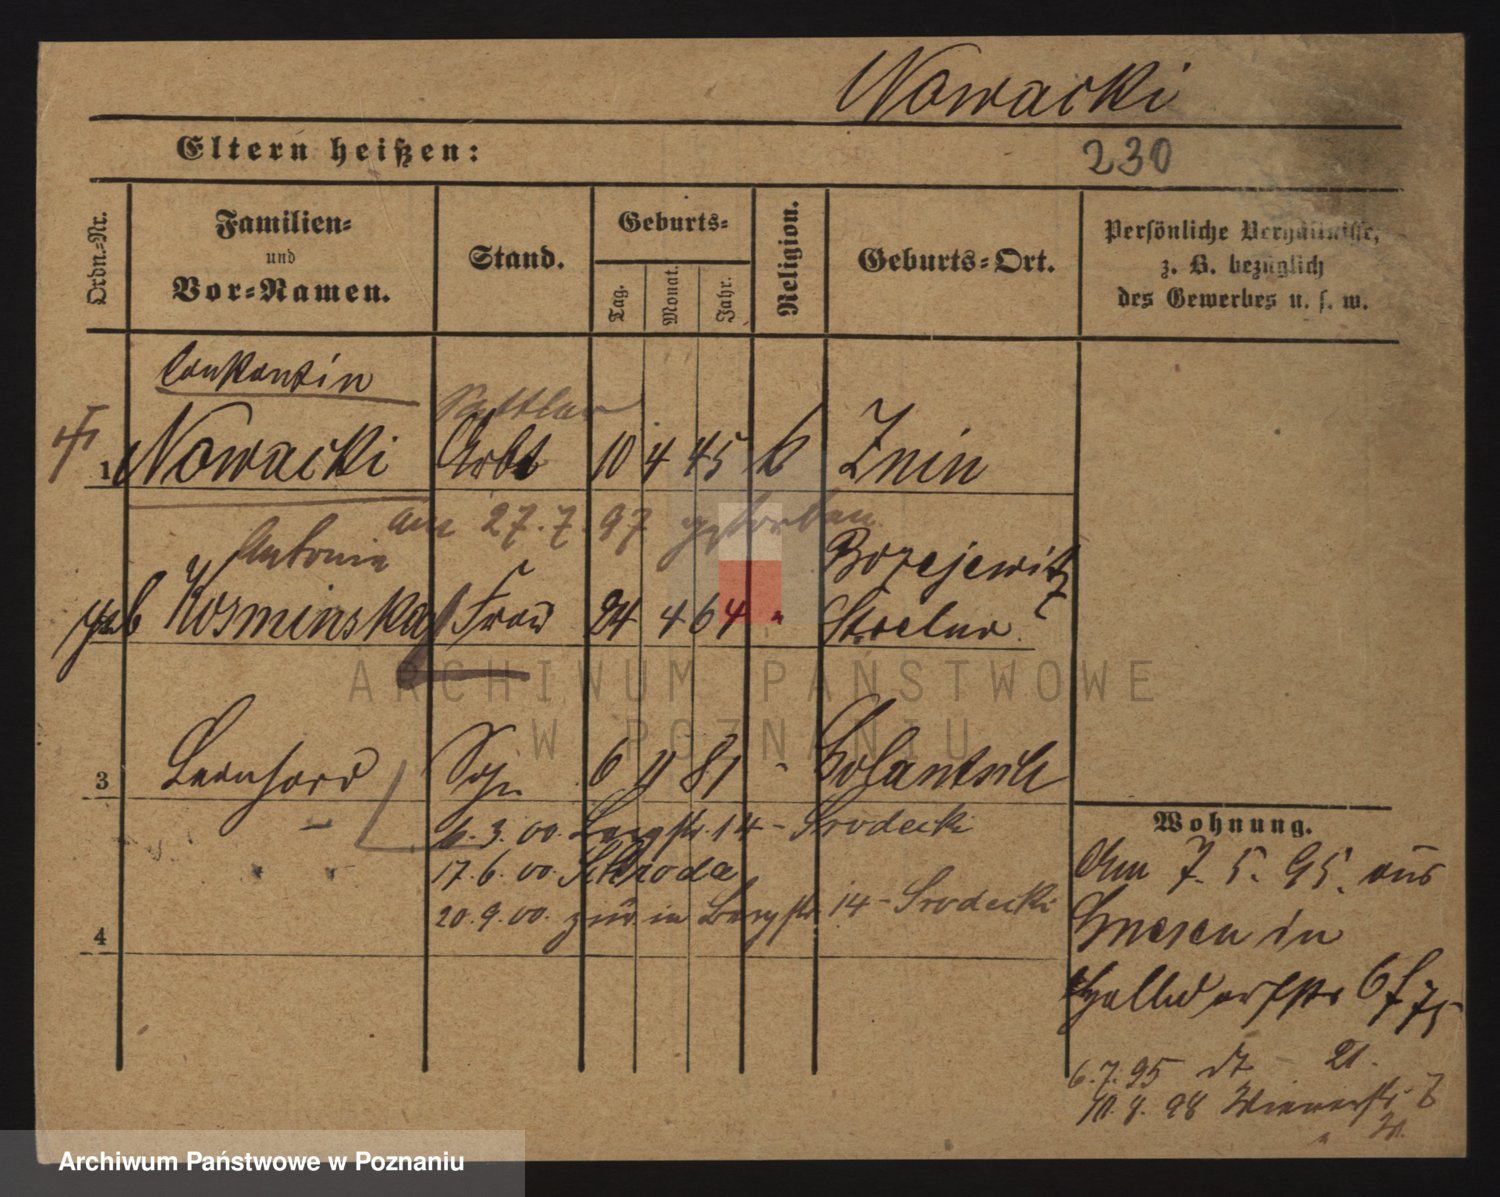 Nowacki
Eltern heißen:
230
Ordn.-Nr.
Familien-
und
Vor-Namen.
Stand.
Geburts-
Tag.
Monat.
Jahr.
Religion.
Geburts-Ort.
Persönliche Verhältnisse,
z. B. bezüglich
des Gewerbes u. s. w.
Konstantin
Sattler
1 Nowacki Arbt 10 4 45 k Znin
am 27.7.97 gestorben
Antonie
Borzejewitz
geb Kosminska Frau 24 4 64 " Strelno
3 Leonhard Sohn 6 11 81 "
6.3.00. Bergstr. 14 - Srodecki
17.6.00. Schroda
20.9.00. zur. in Bergstr. 14 - Srodecki
4
Wohnung.
Am 7.5.95. aus
Gnesen in
Halbdorfstr 6
6.7.95 dt - 21.
10.8.98 Wienerstr. 7
ARCHIWUM PAŃSTWOWE
W POZNANIU
Archiwum Państwowe w Poznaniu